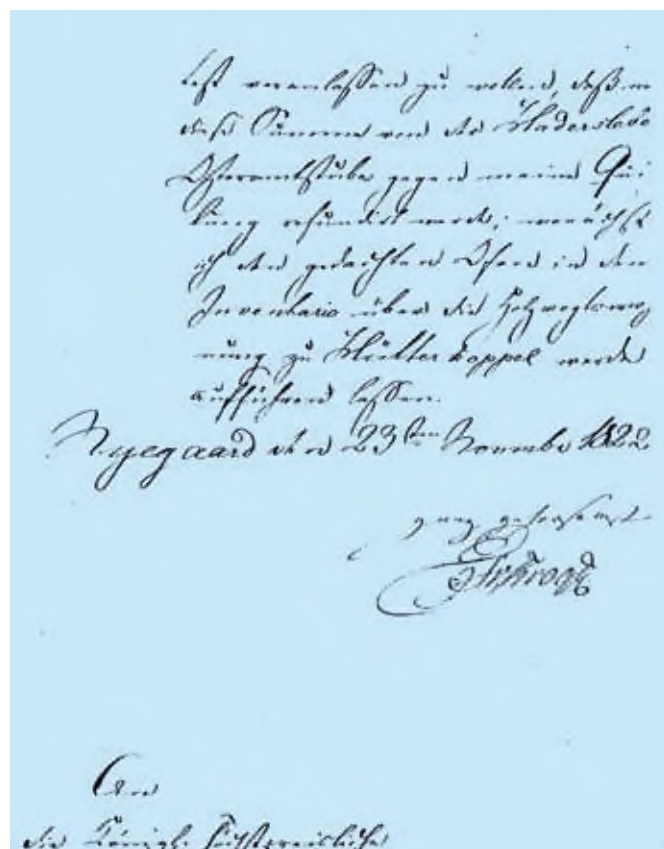 lest veranlassen zu wollen, daß mir
diese Summe von der Haderslebe
Osteramtstube gegen meine Qui
tung refundirt werde; wonächst
ich den gedachten Ofen in dem
Inventario über die Holzvogtswoh
nung zu Klöfter Koppel werde
aufführen lassen.
Nyegaard den 23ten Novembr 1822
ganz gehorsamst
Krogh
An
die Königl. Höchstpreisliche